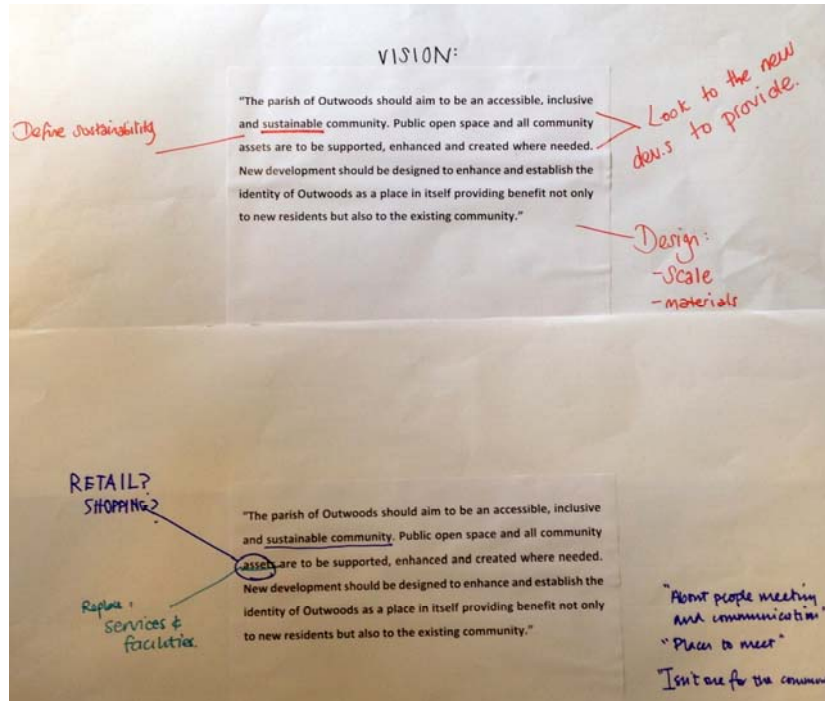 VISION:
"The parish of Outwoods should aim to be an accessible, inclusive
and sustainable community. Public open space and all community
assets are to be supported, enhanced and created where needed.
New development should be designed to enhance and establish the
identity of Outwoods as a place in itself providing benefit not only
to new residents but also to the existing community."
Define sustainability
Look to the new
dev.s to provide.
Design:
-Scale
-materials
RETAIL?
SHOPPING?
"The parish of Outwoods should aim to be an accessible, inclusive
and sustainable community. Public open space and all community
assets are to be supported, enhanced and created where needed.
New development should be designed to enhance and establish the
identity of Outwoods as a place in itself providing benefit not only
to new residents but also to the existing community."
Replace:
services &
facilities.
"About people meeting
and communication"
"Places to meet"
"Isn't one for the